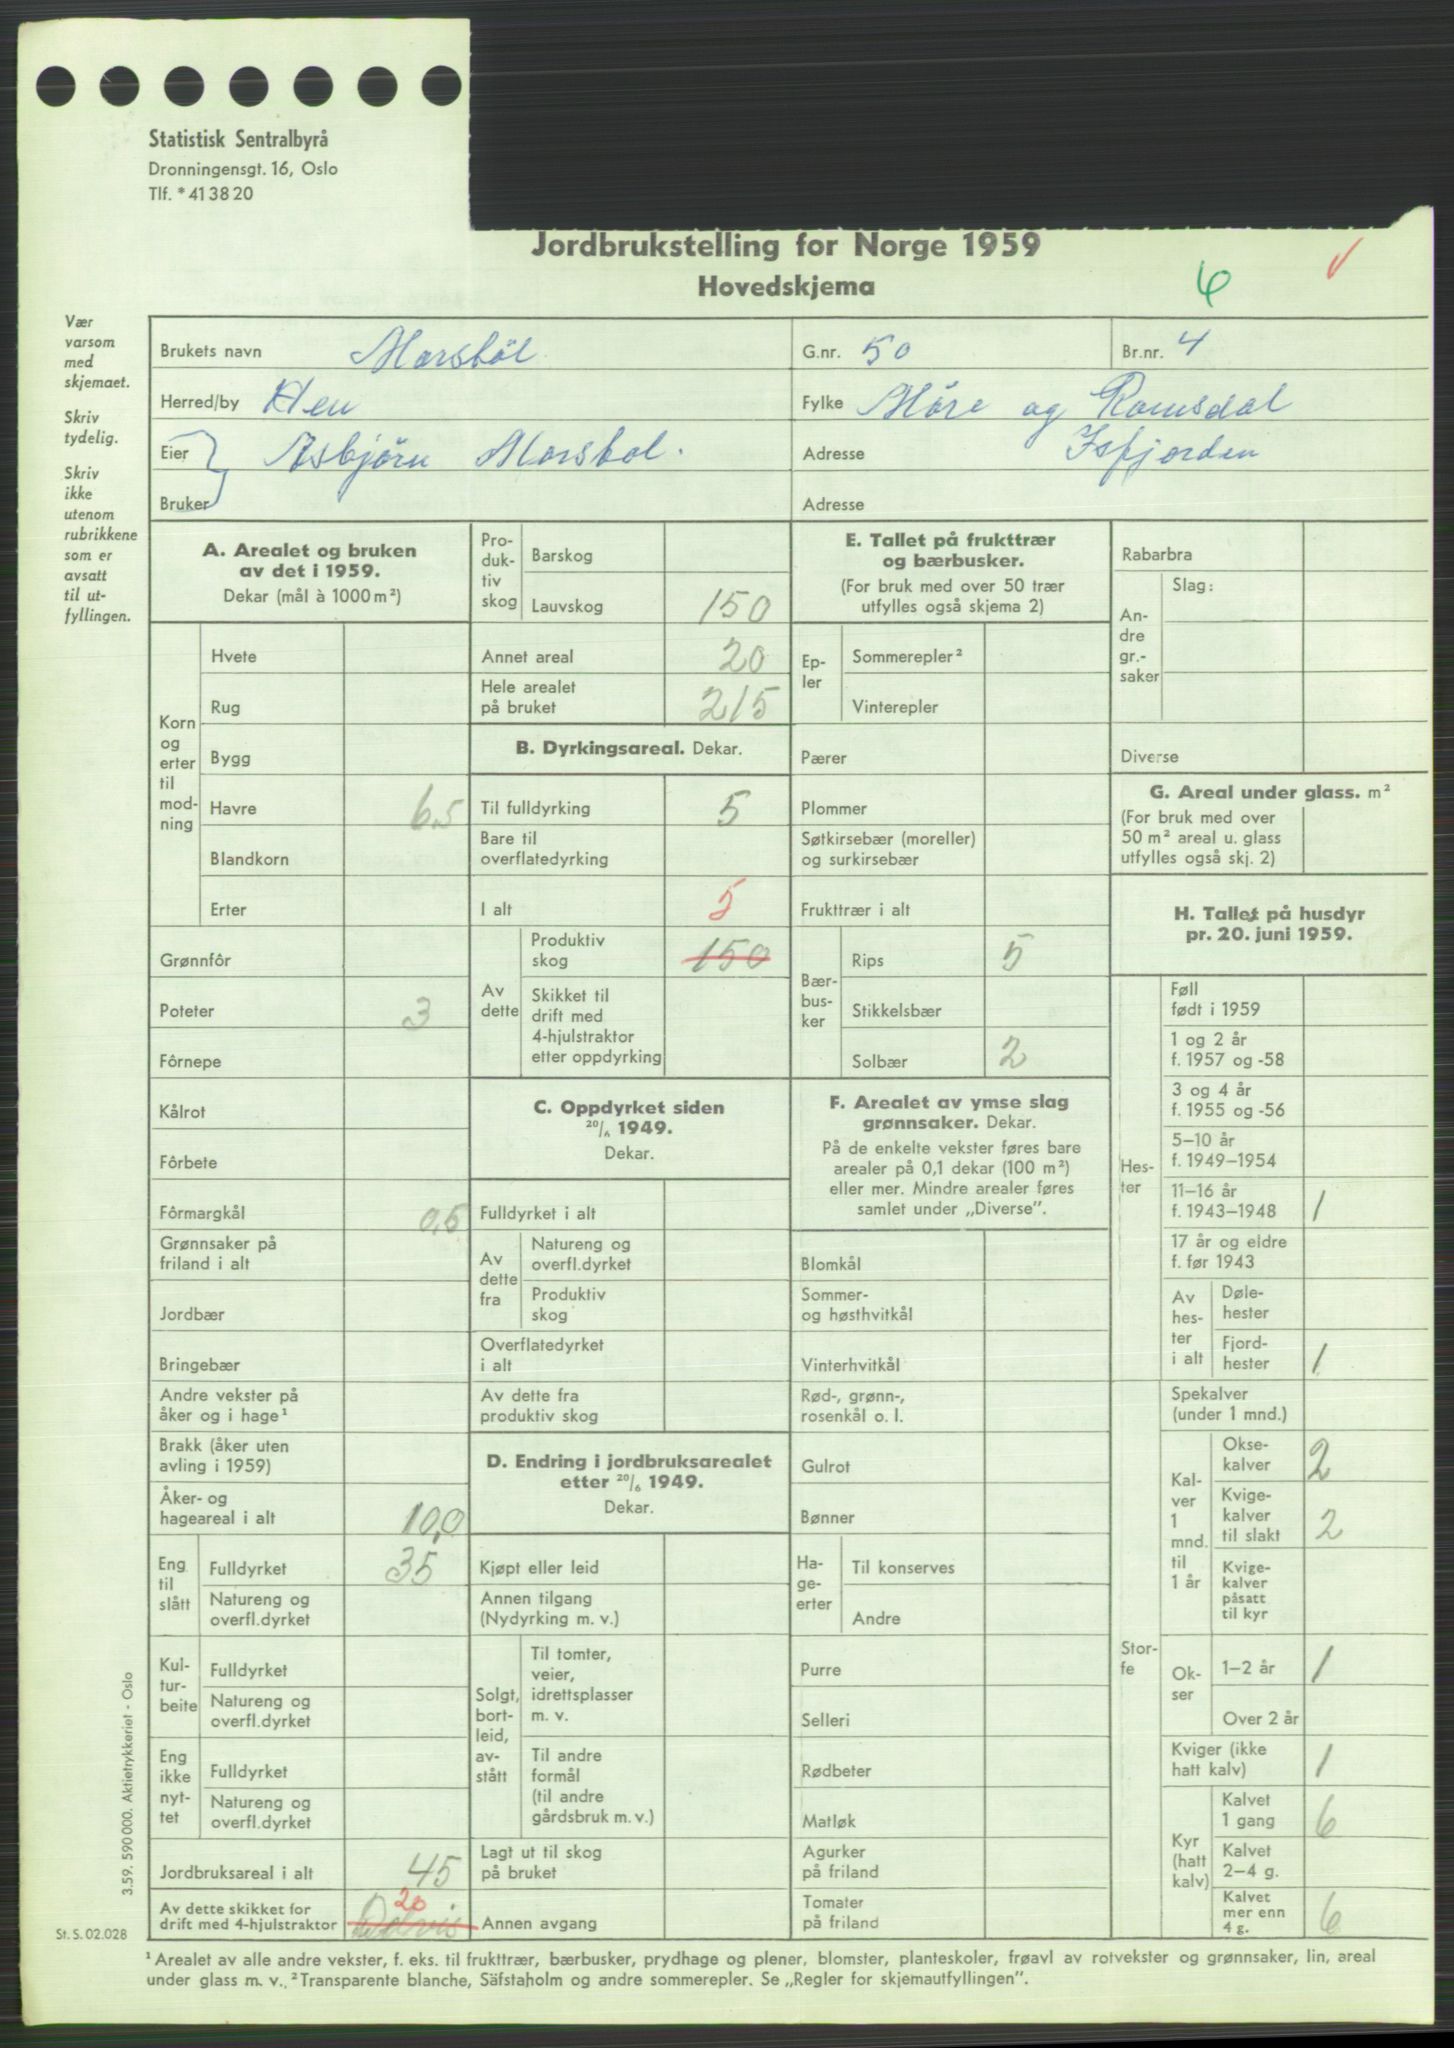 Statistisk Sentralbyrå
Dronningensgt. 16, Oslo
Tlf. * 41 38 20
Jordbrukstelling for Norge 1959
Hovedskjema
6
Vær
varsom
med
skjemaet.
Skriv
tydelig.
Skriv
ikke
utenom
rubrikkene
som er
avsatt
til ut-
fyllingen.
Brukets navn Marsböl G.nr. 50 Br.nr. 4
Herred/by Hen Fylke Möre og Romsdal
Eier Asbjørn Marsbøl. Adresse Isfjorden
Bruker Adresse
A. Arealet og bruken
av det i 1959.
Dekar (mål à 1000 m²)
Korn
og
erter
til
mod-
ning
Hvete
Rug
Bygg
Havre 6,5
Blandkorn
Erter
Grønnfôr
Poteter 3
Fôrnepe
Kålrot
Fôrbete
Fôrmargkål 0,5
Grønnsaker på
friland i alt
Jordbær
Bringebær
Andre vekster på
åker og i hage¹
Brakk (åker uten
avling i 1959)
Åker- og
hageareal i alt 10,0
Eng
til
slått
Fulldyrket 35
Natureng og
overfl.dyrket
Kul-
tur-
beite
Fulldyrket
Natureng og
overfl.dyrket
Eng
ikke
nyt-
tet
Fulldyrket
Natureng og
overfl.dyrket
Jordbruksareal i alt 45
Av dette skikket for
drift med 4-hjulstraktor Delvis 20
Pro-
duk-
tiv
skog
Barskog
Lauvskog 150
Annet areal 20
Hele arealet
på bruket 215
B. Dyrkingsareal. Dekar.
Til fulldyrking 5
Bare til
overflatedyrking
I alt 5
Av
dette
Produktiv
skog 150
Skikket til
drift med
4-hjulstraktor
etter oppdyrking
C. Oppdyrket siden
20/6 1949.
Dekar.
Fulldyrket i alt
Av
dette
fra
Natureng og
overfl.dyrket
Produktiv
skog
Overflatedyrket
i alt
Av dette fra
produktiv skog
D. Endring i jordbruksarealet
etter 20/6 1949.
Dekar.
Kjøpt eller leid
Annen tilgang
(Nydyrking m. v.)
Solgt,
bort-
leid,
av-
stått
Til tomter,
veier,
idrettsplasser
m. v.
Til andre
formål
(til andre
gårdsbruk m. v.)
Lagt ut til skog
på bruket
Annen avgang
E. Tallet på frukttrær
og bærbusker.
(For bruk med over 50 trær
utfylles også skjema 2)
Ep-
ler
Sommerepler²
Vinterepler
Pærer
Plommer
Søtkirsebær (moreller)
og surkirsebær
Frukttrær i alt
Bær-
bus-
ker
Rips 5
Stikkelsbær
Solbær 2
F. Arealet av ymse slag
grønnsaker. Dekar.
På de enkelte vekster føres bare
arealer på 0,1 dekar (100 m²)
eller mer. Mindre arealer føres
samlet under „Diverse”.
Blomkål
Sommer-
og høsthvitkål
Vinterhvitkål
Rød-, grønn-,
rosenkål o. l.
Gulrot
Bønner
Ha-
ge-
erter
Til konserves
Andre
Purre
Selleri
Rødbeter
Matløk
Agurker
på friland
Tomater
på friland
Rabarbra
An-
dre
gr.-
saker
Slag:
Diverse
G. Areal under glass. m²
(For bruk med over
50 m² areal u. glass
utfylles også skj. 2)
H. Tallet på husdyr
pr. 20. juni 1959.
Hes-
ter
Føll
født i 1959
1 og 2 år
f. 1957 og -58
3 og 4 år
f. 1955 og -56
5–10 år
f. 1949–1954
11–16 år
f. 1943–1948 1
17 år og eldre
f. før 1943
Av
hes-
ter
i alt
Døle-
hester
Fjord-
hester 1
Stor-
fe
Spekalver
(under 1 mnd.)
Kal-
ver
1
mnd.
til
1 år
Okse-
kalver 2
Kvige-
kalver
til slakt 2
Kvige-
kalver
påsatt
til kyr
Ok-
ser
1–2 år 1
Over 2 år
Kviger (ikke
hatt kalv) 1
Kyr
(hatt
kalv)
Kalvet
1 gang 6
Kalvet
2–4 g.
Kalvet
mer enn
4 g. 6
3.59. 590 000. Aktietrykkeriet - Oslo
St. S. 02.028
¹ Arealet av alle andre vekster, f. eks. til frukttrær, bærbusker, prydhage og plener, blomster, planteskoler, frøavl av rotvekster og grønnsaker, lin, areal
under glass m. v. ² Transparente blanche, Säfstaholm og andre sommerepler. Se „Regler for skjemautfyllingen”.